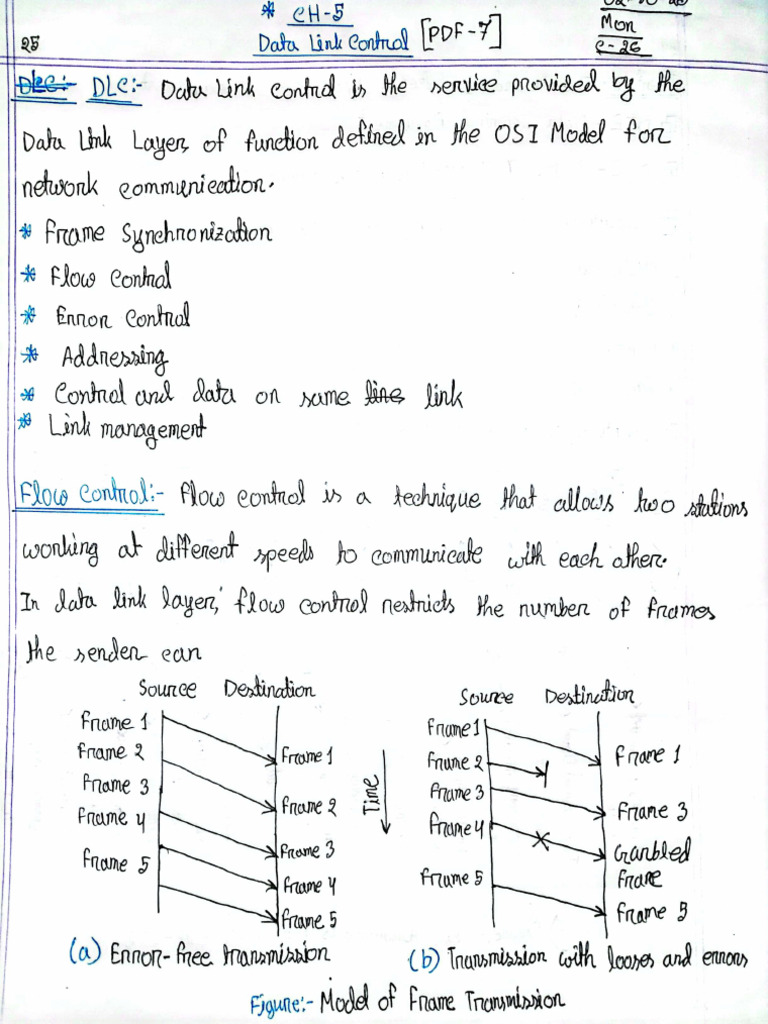 * CH-5
Data Link Control [PDF-7]
Mon
C-26
25
DLC:- DLC:- Data Link control is the service provided by the
Data Link Layer, of function defined in the OSI Model for
network communication.
* Frame Synchronization
* Flow Control
* Error Control
* Addressing
* Control and data on same line link
* Link management
Flow Control:- Flow control is a technique that allows two stations
working at different speeds to communicate with each other.
In data link layer, flow control restricts the number of frames
the sender can
Source Destination
Frame 1
Frame 2
Frame 3
Frame 4
Frame 5
Frame 1
Frame 2
Frame 3
Frame 4
Frame 5
(a) Error-free transmission
Time
Source Destination
Frame 1
Frame 2
Frame 3
Frame 4
Frame 5
Frame 1
Frame 3
Garbled
Frame
Frame 5
(b) Transmission with looses and errors
Figure:- Model of Frame Transmission